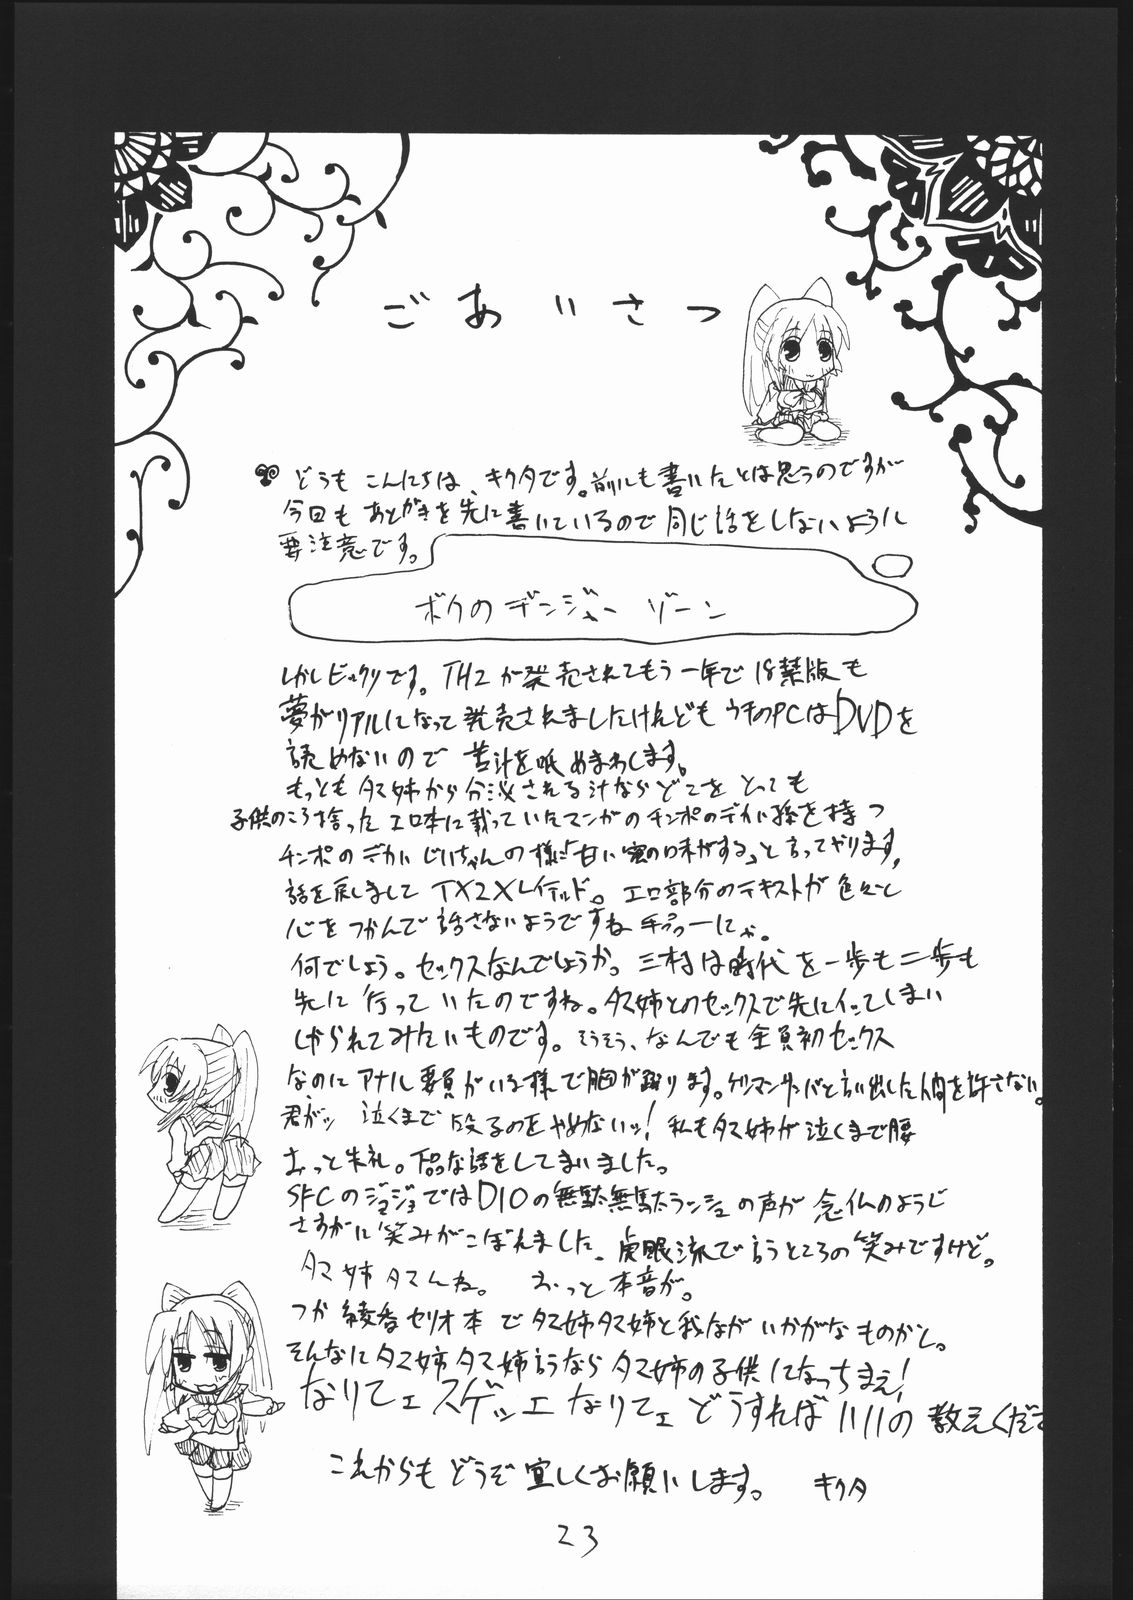 ごあいさつ
どうもこんにちは、キクタです。前にも書いたとは思うのですが
今回もあとがきを先に書いているので同じ話をしないように
要注意です。
ボクのデンジャーゾーン
しかしビックリです。TH2が発売されてもう一年で18禁版も
夢がリアルになって発売されましたけれどもウチのPCはDVDを
読めないので苦汁を
もっともタマ姉から分泌される汁ならどこをとっても
子供のころ拾ったエロ本に載っていたマンガのチンポのデカい孫を持つ
チンポのデカいじいちゃんの様に「甘い蜜の味がする」と言ってやります。
話を戻しまして TX2X エロ部分のテキストが色々と
心をつかんで話さないようですね
何でしょう。セックスなんでしょうか。三村は時代を一歩も二歩も
先に行っていたのですね。タマ姉とのセックスで先にイッてしまい
しかられてみたいものです。そうそう、なんでも全員初セックス
なのにアナル要員がいる様で胸が踊ります。ゲリマンサンバと言い出した人間を許さない。
君がッ 泣くまで殴るのをやめないッ!私もタマ姉が泣くまで腰
おっと失礼。下品な話をしてまいました。
SFCのジョジョではDIOの無駄無駄ラッシュの声が念仏のようじ
さすがに笑みがこぼれました、虎眼流で言うところの笑みですけど。
タマ姉タマんね。 おっと本音が。
つか綾香セリオ本でタマ姉タマ姉と我ながいかがなものかと。
そんなにタマ姉タマ姉言うならタマ姉の子供になっちまえ!
なりてェスゲッェなりてェどうすればいいの教えくださ
これからもどうぞ宜しくお願いします。 キクタ
23